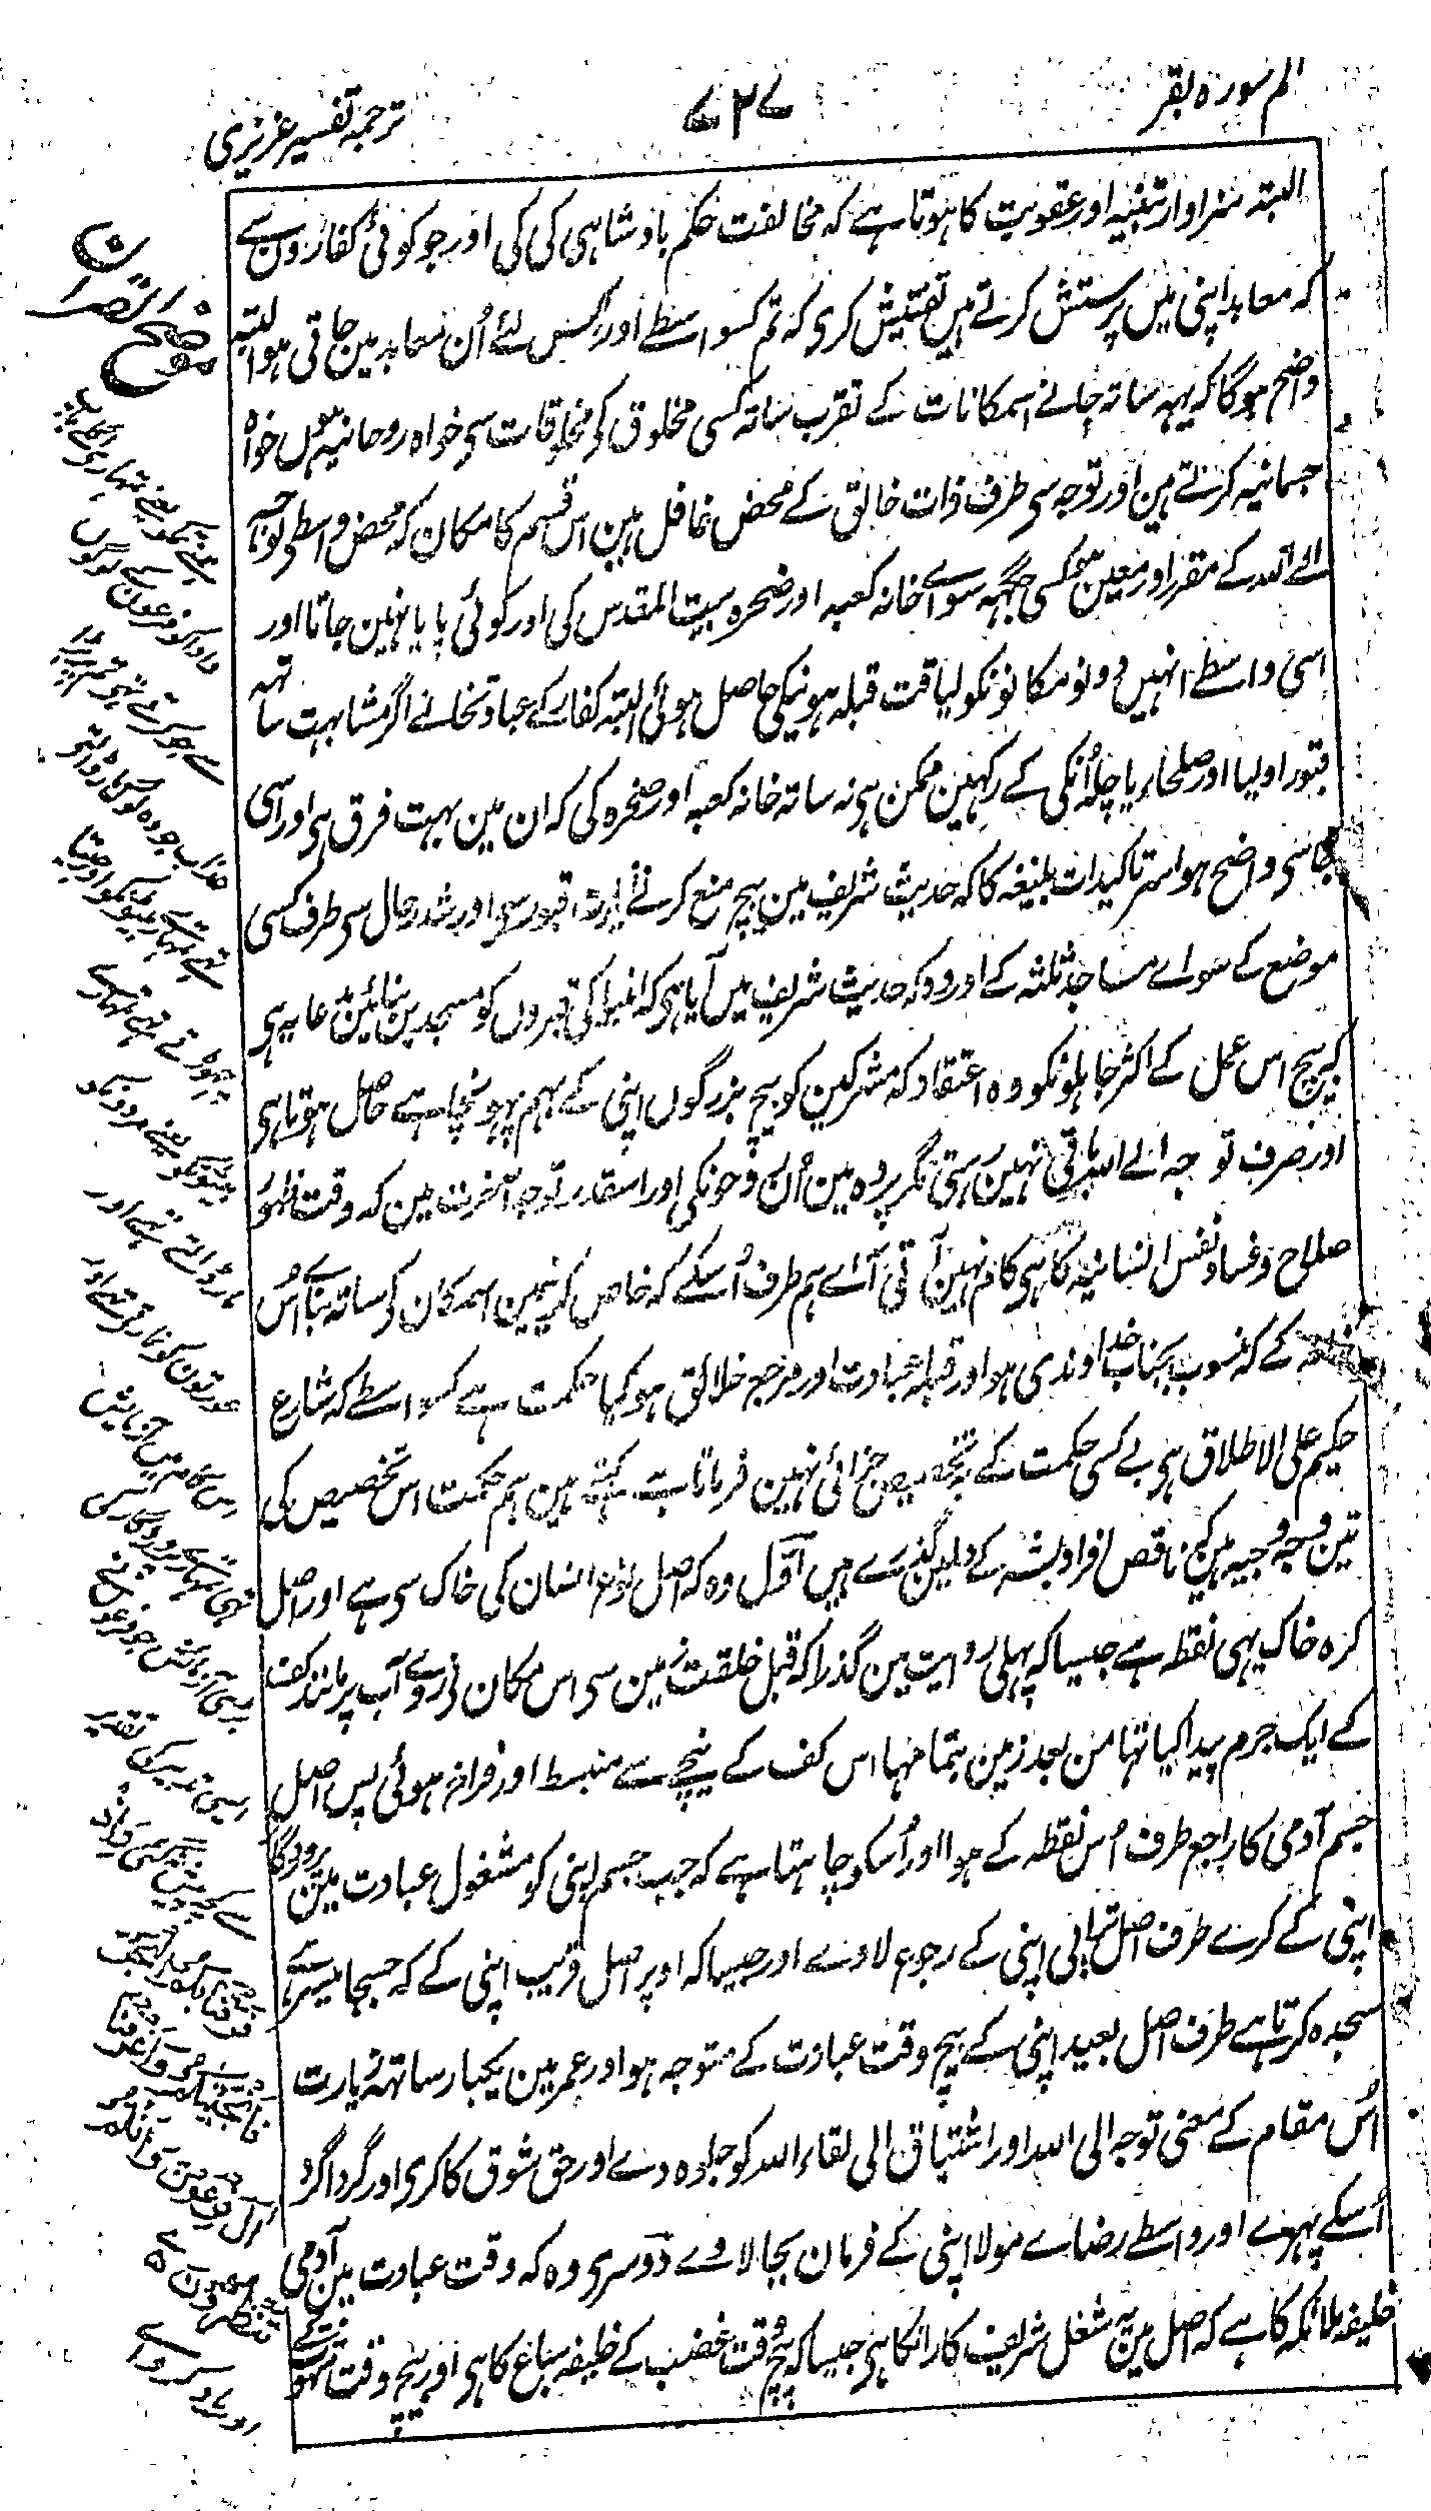 الم سورہ بقر
۷۲۷
ترجمہ تفسیر عزیزی
البتہ سزاوار تنبیہ اور عقوبت کا ہوتا ہے کہ مخالفت حکم بادشاہی کی کی اور جو کوئی کفارون سے
کہ معابد اپنی میں پرستش کرتے ہیں تفتیش کری کہ تم کسواسطے اور کس لئے اُن معابد مین جاتی ہو البتہ
واضح ہوگا کہ یہہ ساتہ جانے اسمکانات کے تقرب ساتہ کسی مخلوق کو مخلوقات سی خواہ روحانیہ ہوں خواہ
جسمانیہ کرتے ہین اور توجہ سی طرف ذات خالق کے محض غافل ہین اس قسم کا مکان کہ محض واسطی توجہ
الے اللہ کے مقرر اور معین ہو کسی جگہہ سواے خانہ کعبہ اور صخرہ بیت المقدس کی اور کوئی پایا نہین جاتا اور
اسی واسطے انہیں دونو مکانونکو لیاقت قبلہ ہونیکی حاصل ہوئی البتہ کفار کے عبادتخانے اگر مشابہت ساتہہ
قبور اولیا اور صلحا یا چلہ اُنکی کے رکہین ممکن ہی نہ ساتہ خانہ کعبہ اور صخرہ کی کہ ان مین بہت فرق ہی اور اسی
جا سی واضح ہوا سر تاکیدات بلیغہ کا کہ حدیث شریف مین بیچ منع کرنے زیارت قبور سی اور شد رحال سی طرف کسی
موضع کے سواے مساجد ثلثہ کے اور وہ کہ حدیث شریف میں آیا ہی کہ انبیا کی قبروں کو مسجدین بنائین مدعا یہ ہی
کہ بیچ اس عمل کے اکثر جاہلونکو وہ اعتقاد کہ مشرکین کو بیچ بزرگوں اپنی کے بہم پہونچا ہے حاصل ہوتا ہی
اور صرف توجہ الے اللہ باقی نہین رہتی مگر پردہ مین اُن روحونکی اور اسقدر توجہ آخرت مین کہ وقت ظہور
صلاح و فساد نفس انسانیہ کا ہی کام نہین آتی آئے ہم طرف اُسکے کہ خاص کرنیمین اسمکان کو ساتہ بنا اُس
خانہ کے کہ منسوب بجناب خداوندی ہو اور قبلہ عبادت اور مرجع خلائق ہو کیا حکمت ہے کسواسطے کہ شارع
حکیم علی الاطلاق ہی بے کسی حکمت کے تخصیص جزائی نہین فرماتا ہے کہتے ہین ہم حکمت اس تخصیص کی
تین وجہ وجیہ ہین کہ ناقص افراد بشر کے دلمین گذرے ہیں اوّل وہ کہ اصل نوع انسان کی خاک سی ہے اور اصل
کرہ خاک یہی نقطہ ہے جیسا کہ پہلی روایت مین گذرا کہ قبل خلقت زمین سی اس مکان نی روے آب پر مانند کف
کے ایک جرم پیدا کیا تہا من بعد زمین بتمامہا اس کف کے نیچے سے منبسط اور فراخ ہوئی پس اصل
جسم آدمی کا راجع طرف اُس نقطہ کے ہوا اور اُسکو چاہتا ہے کہ جب جسم اپنی کو مشغول عبادت مین پروردگار
اپنی کے کرے طرف اصل ترابی اپنی کے رجوع لاوے اور جیسا کہ اوپر اصل قریب اپنی کے کہ جسجا میسر ہے
سجدہ کرتا ہے طرف اصل بعید اپنی کے بیچ وقت عبادت کے متوجہ ہو اور عمر مین یکبار ساتہہ زیارت
اُس مقام کے معنی توجہ الی اللہ اور اشتیاق الی لقاء اللہ کو جلوہ دے اور حق شوق کا کری اور گرداگرد
اُسکے پہرے اور واسطے رضاے مولا اپنی کے فرمان بجا لاوے دوسری وہ کہ وقت عبادت مین آدمی
خلیفہ ملائکہ کا ہے کہ اصل مین یہہ شغل شریف کار انکا ہی جیسا کہ بیچ وقت غضب کے خلیفہ سباع کا ہی اور بیچ وقت شہوت کے
موضح القرآن
فرعون کے لوگوں
عذاب
چہوڑتے تہے تمہارے
بیٹیونکو یعنے مردونکو
مار ڈالتے تہے اور
اس کام میں آزمایش
تہی تمہارے پروردگار کی
بڑی آزمایش جو فرعون نے
وَإِذْ
فَرَقْنَا بِكُمُ الْبَحْرَ
فَأَنْجَيْنَاكُمْ وَأَغْرَقْنَا
آلَ فِرْعَوْنَ وَأَنْتُمْ
تَنْظُرُونَ
اور یاد کرو اے